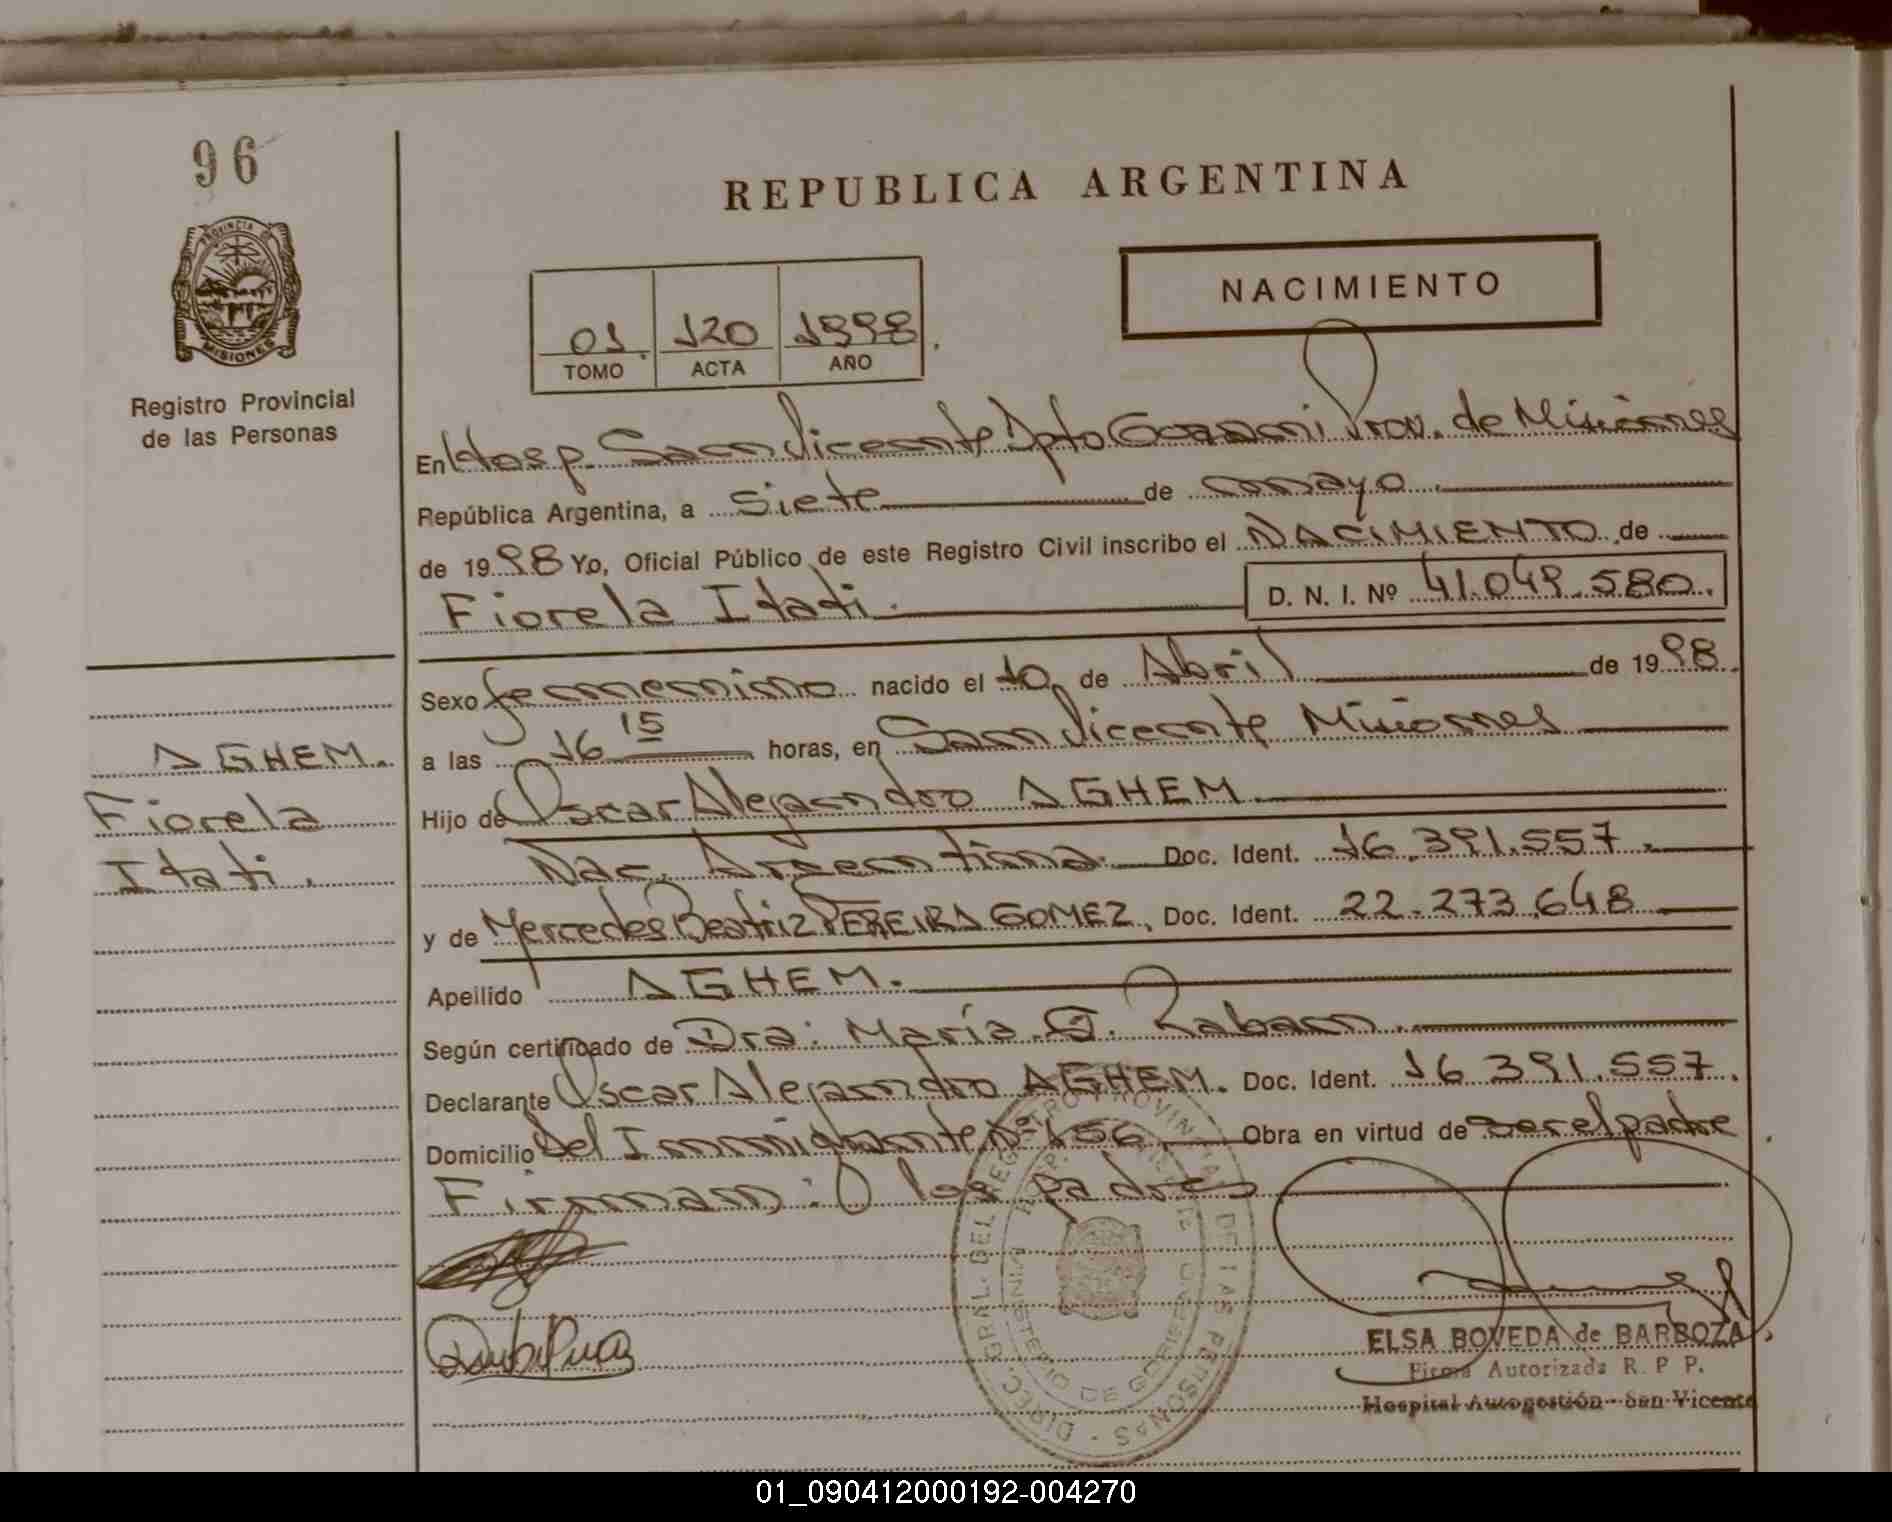 96
REPUBLICA ARGENTINA
PROVINCIA DE
MISIONES
Registro Provincial
de las Personas
NACIMIENTO
01. 120 1998.
TOMO ACTA AÑO
En Hosp. San Vicente Dpto Guarani Prov. de Misiones
República Argentina, a siete de mayo.
de 1998 Yo, Oficial Público de este Registro Civil inscribo el NACIMIENTO de
Fiorela Itati. D. N. I. Nº 41.049.580.
Sexo femenino nacido el 10 de Abril de 1998.
a las 16 15 horas, en San Vicente Misiones
AGHEM.
Fiorela
Itati.
Hijo de Oscar Alejandro AGHEM
Nac. Argentina. Doc. Ident. 16.391.557.
y de Mercedes Beatriz PEREIRA GOMEZ, Doc. Ident. 22.273.648
Apellido AGHEM.
Según certificado de Dra: María G. Rabam.
Declarante Oscar Alejandro AGHEM. Doc. Ident. 16 391.557.
Domicilio Del Inmigrante Nº 156 Obra en virtud de ser el padre
Firman: los padres
DIREC. GRAL. DEL REGISTRO PROVINCIAL DE LAS PERSONAS
MINISTERIO DE GOBIERNO
ELSA BOVEDA de BARBOZA
Firma Autorizada R. P P.
Hospital Autogestión - San Vicente
01_090412000192-004270